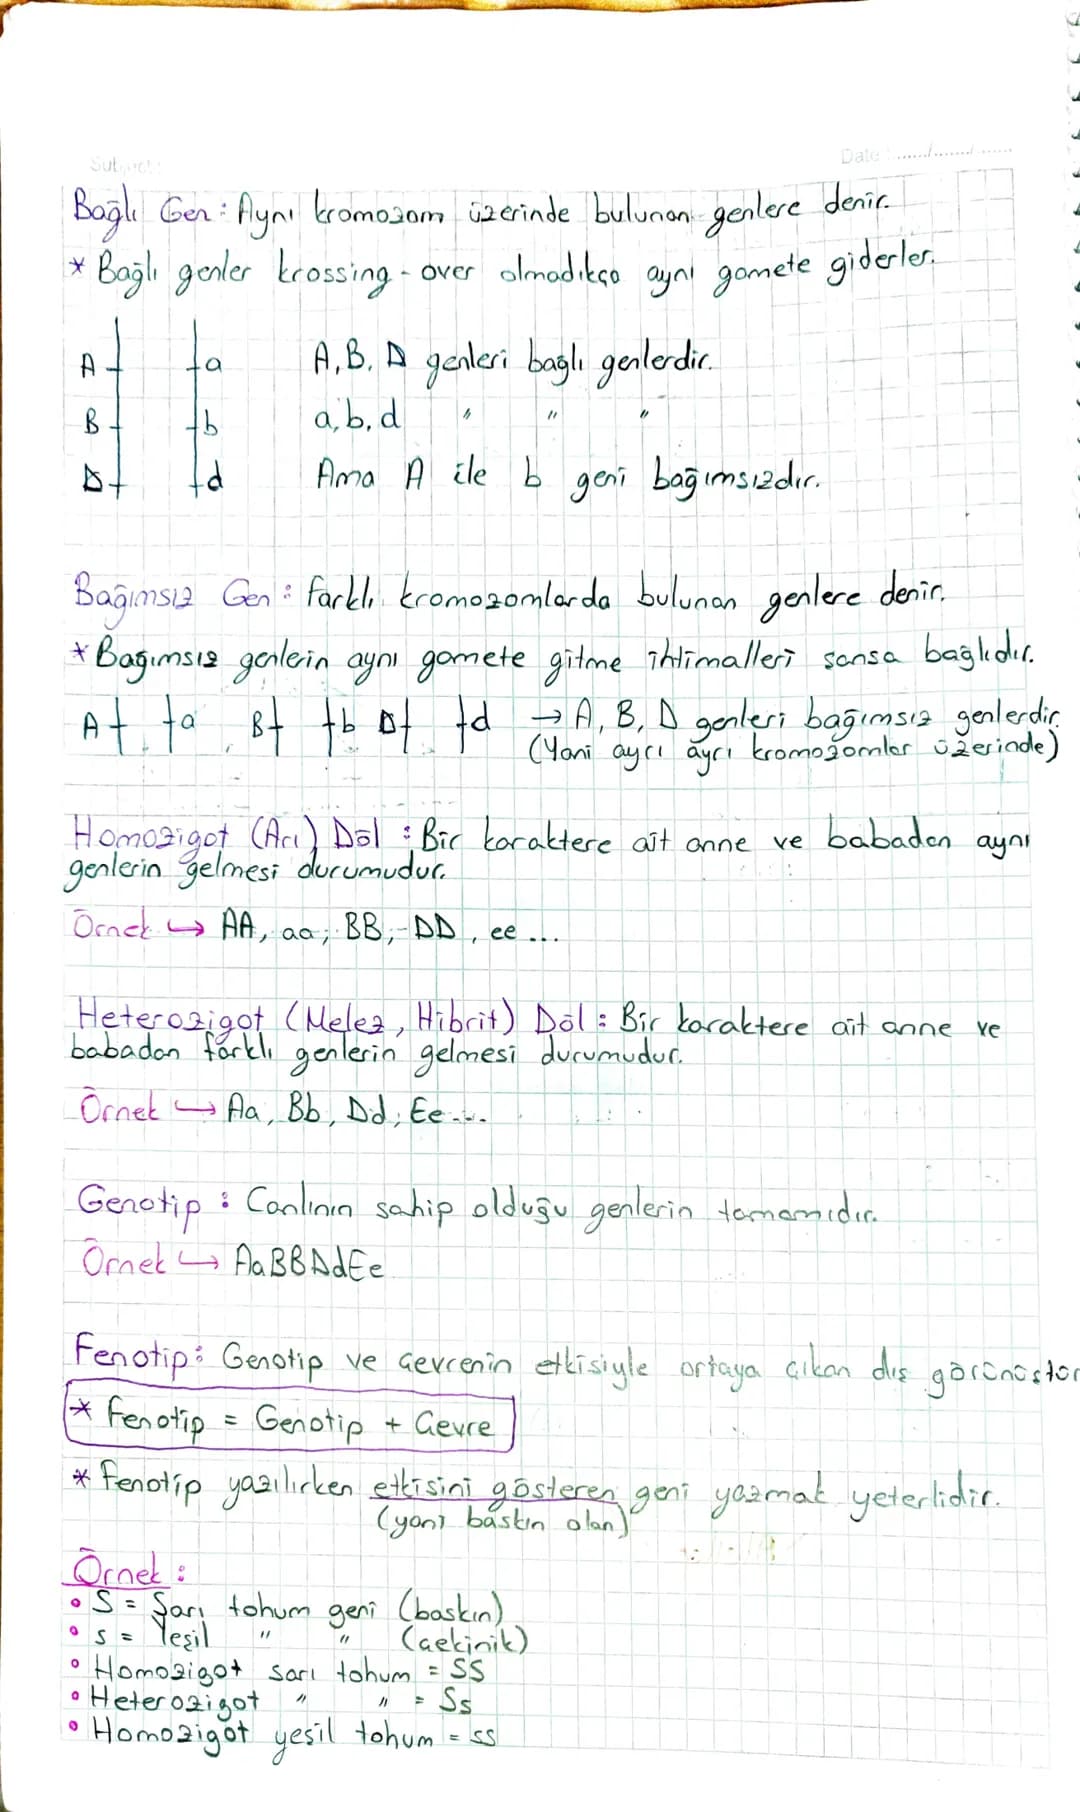 Subject:
Date:......./......./.......
Bağlı Gen: Aynı kromozom üzerinde bulunan genlere denir.
* Bağlı genler krossing-over olmadıkça aynı gamete giderler.
A a A, B, D genleri bağlı genlerdir.
B b a, b, d " " "
D d Ama A ile b geni bağımsızdır.
Bağımsız Gen: Farklı kromozomlarda bulunan genlere denir.
* Bağımsız genlerin aynı gamete gitme ihtimalleri şansa bağlıdır.
A a B b D d → A, B, D genleri bağımsız genlerdir.
(Yani ayrı ayrı kromozomlar üzerinde)
Homozigot (Arı) Döl: Bir karaktere ait anne ve babadan aynı
genlerin gelmesi durumudur.
Örnek ↪ AA, aa, BB, DD, ee ...
Heterozigot (Melez, Hibrit) Döl: Bir karaktere ait anne ve
babadan farklı genlerin gelmesi durumudur.
Örnek ↪ Aa, Bb, Dd, Ee ...
Genotip: Canlının sahip olduğu genlerin tamamıdır.
Örnek ↪ AaBBDdEe
Fenotip: Genotip ve çevrenin etkisiyle ortaya çıkan dış görünüştür
* Fenotip = Genotip + Çevre
* Fenotip yazılırken etkisini gösteren geni yazmak yeterlidir.
(yani baskın olan)
Örnek:
• S = Sarı tohum geni (baskın)
• s = Yeşil " " (çekinik)
• Homozigot sarı tohum = SS
• Heterozigot " " = Ss
• Homozigot yeşil tohum = ss